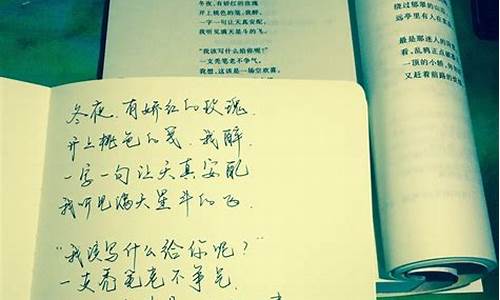 冬夜,有娇红的玫瑰
开上桃色的笺,我醉,
一字一句让天真安配,
我听见满天星斗的飞。
“我该写什么给你呢?”
一支秃笔老不争气。
我想,这该是一场空欢喜。
绕过郁翠的山
远亭里有人在
最是那迷人的
看,乱鸦正点破
一顶的小轿,
又赶着前路的
冬夜,有娇红的玫瑰,
开上桃色的笺,我醉,
一字一句让天真安配
我听见满天星斗的飞,
“我该写什么给你呢?”
一支秃笔老不争气,